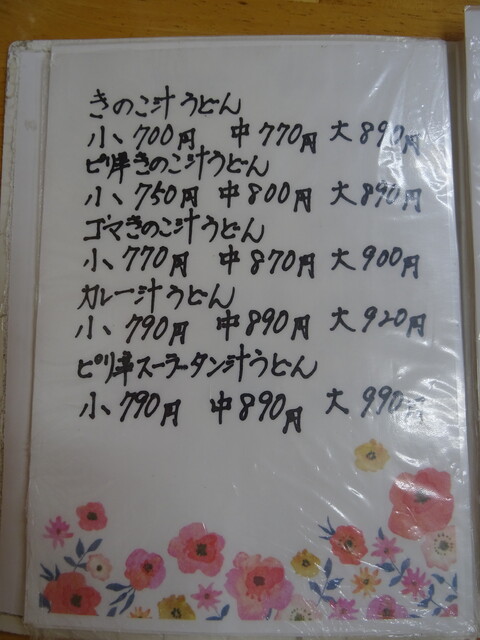 きのこ汁うどん
小、700円 中770円 大890円
ピリ辛きのこ汁うどん
小、750円 中800円 大890円
ゴマきのこ汁うどん
小、770円 中870円 大900円
カレー汁うどん
小、790円 中890円 大920円
ピリ辛スーラータン汁うどん
小、790円 中890円 大990円